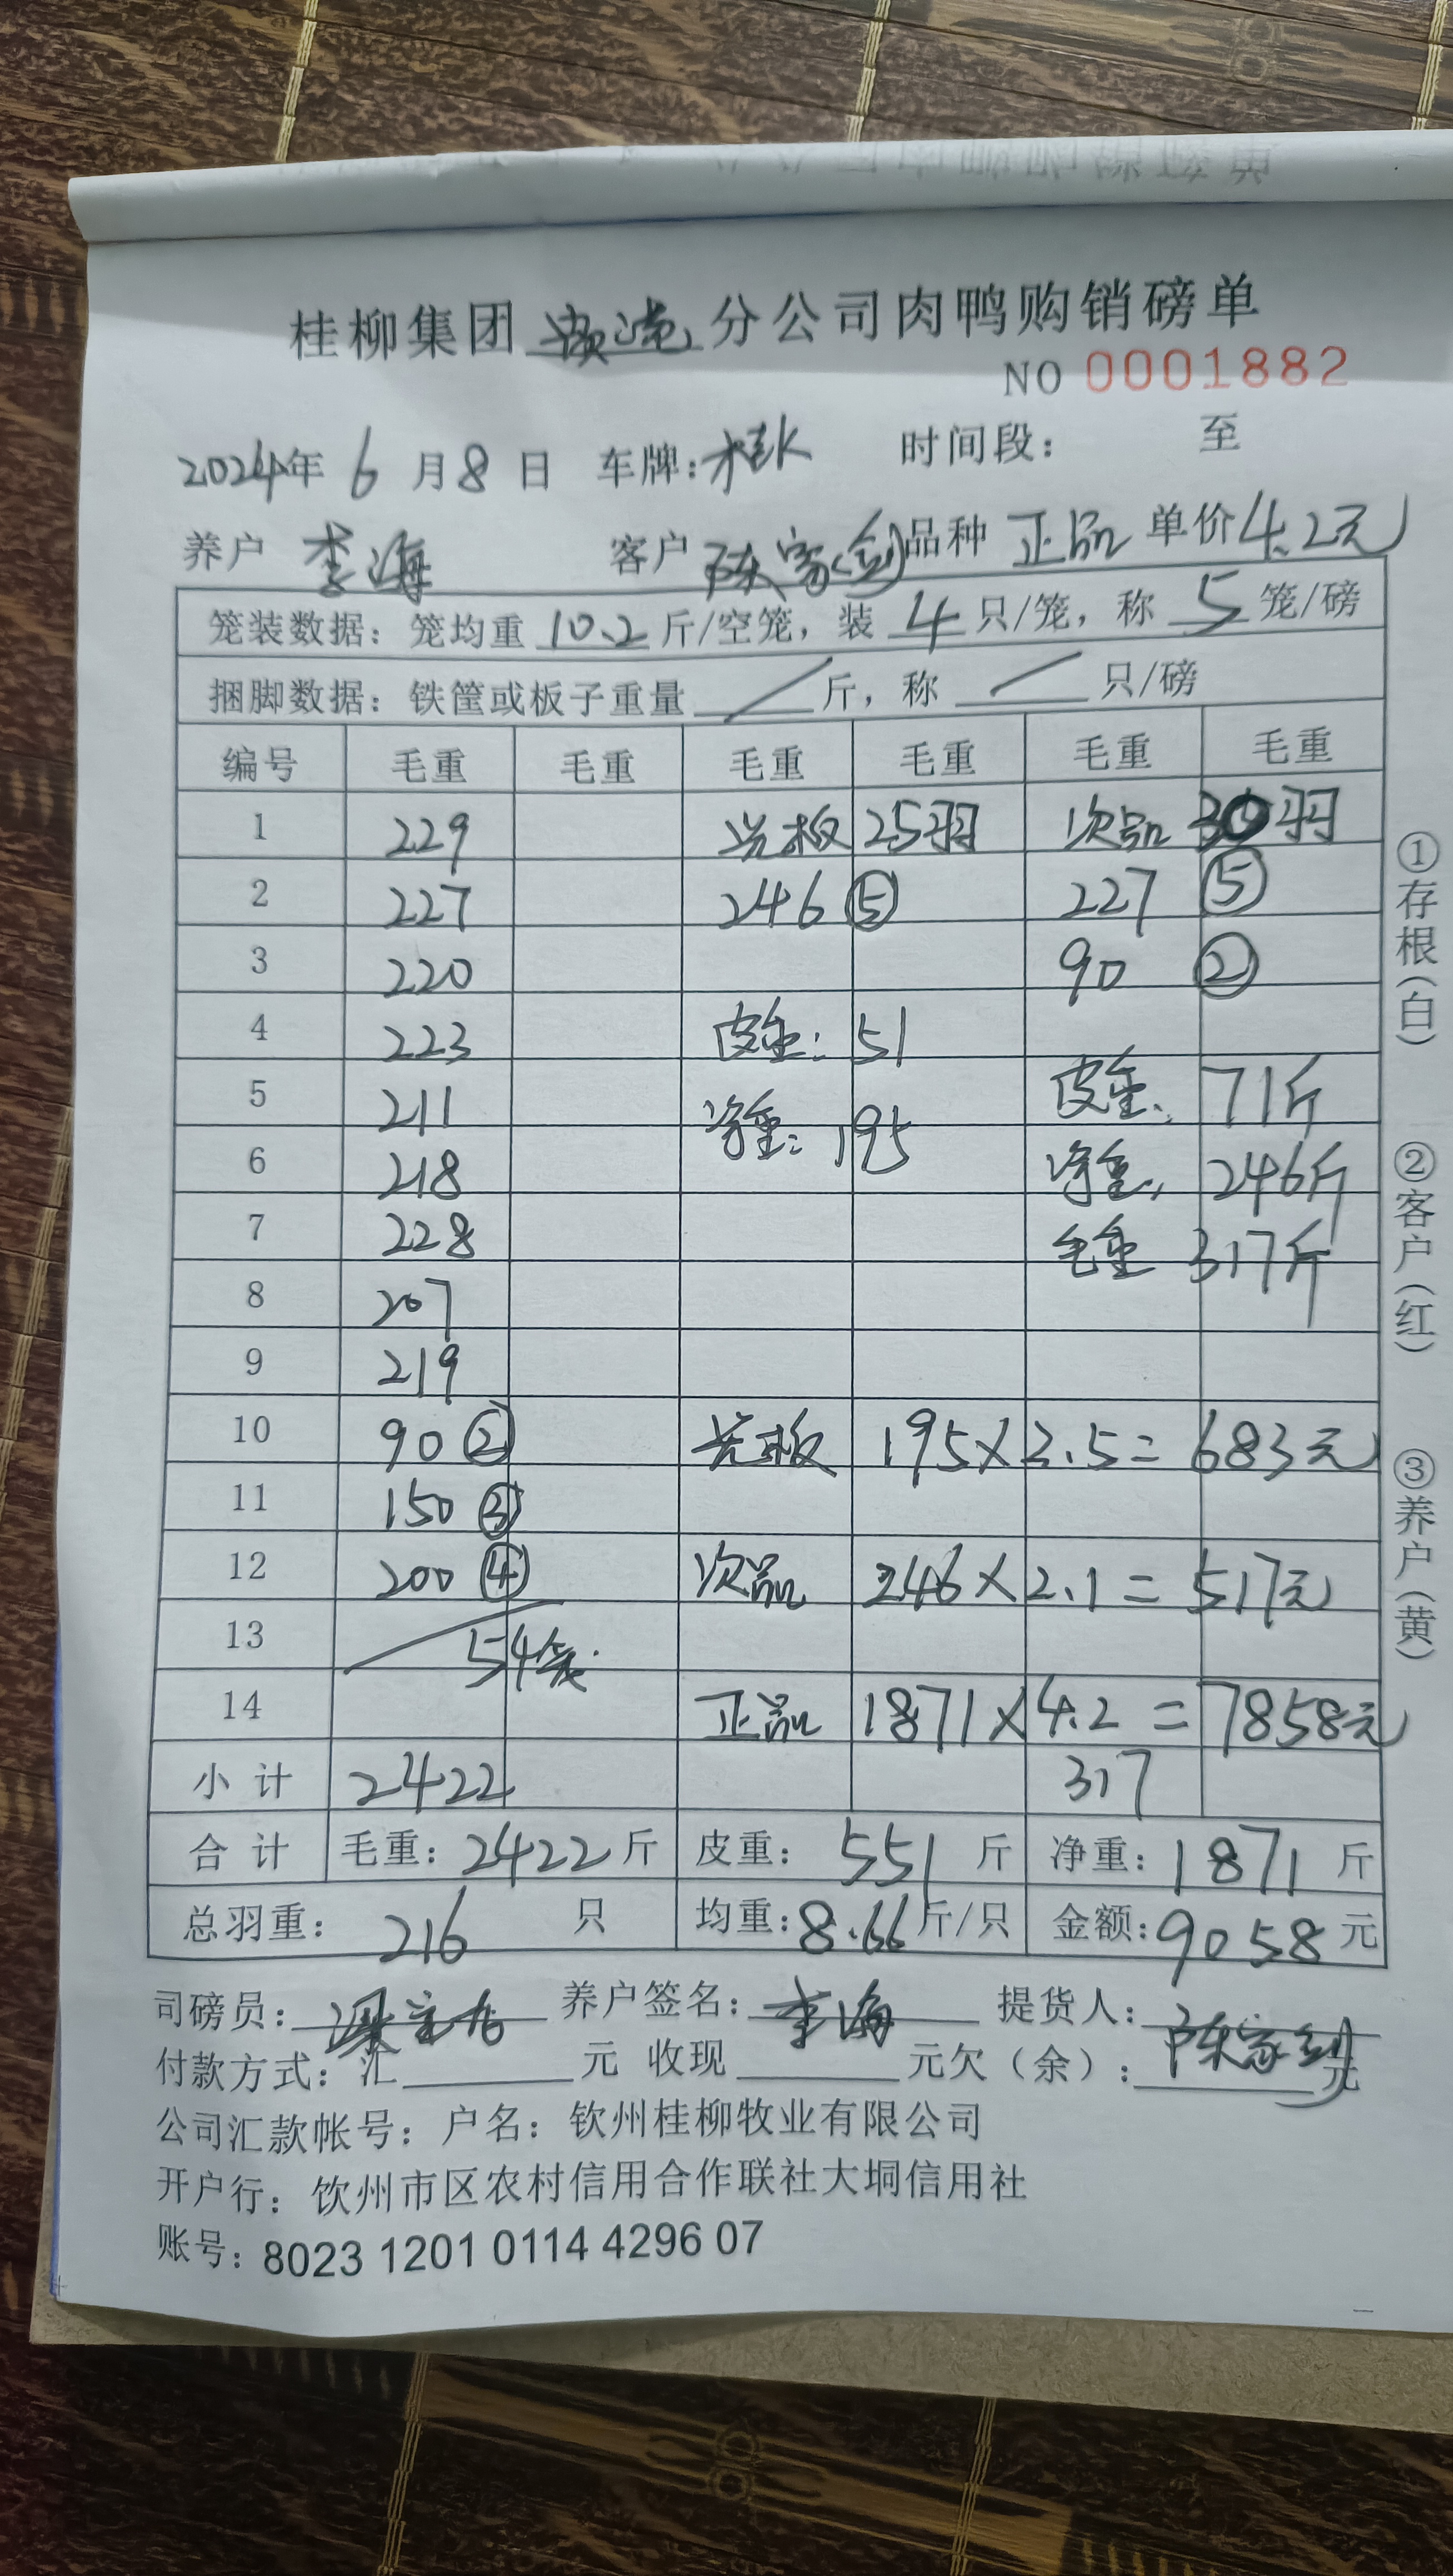 桂柳集团 分公司肉鸭购销磅单
NO 0001882
2024年 6 月 8 日 车牌:桂K 时间段: 至
养户 李海 客户 陈家剑 品种 正品 单价 4.2元
笼装数据: 笼均重 10.2 斤/空笼, 装 4 只/笼, 称 5 笼/磅
捆脚数据: 铁筐或板子重量 / 斤, 称 / 只/磅
编号 毛重 毛重 毛重 毛重 毛重 毛重
1 229 光板 25羽 次品 30羽
2 227 246 ⑤ 227 ⑤
3 220 90 ②
4 223 皮重: 51
5 211 净重: 195 皮重: 71斤
6 218 净重: 246斤
7 228 毛重 317斤
8 207
9 219
10 90 ② 光板 195×3.5= 683元
11 150 ③
12 200 ④ 次品 246×2.1= 517元
13 54笼
14 正品 1871×4.2= 7858元
小计 2422 317
合计 毛重: 2422 斤 皮重: 551 斤 净重: 1871 斤
总羽重: 216 只 均重: 8.66 斤/只 金额: 9058 元
司磅员: 养户签名: 李海 提货人: 陈家剑
付款方式: 汇 元 收现 元欠(余): 元
公司汇款帐号: 户名: 钦州桂柳牧业有限公司
开户行: 钦州市区农村信用合作联社大垌信用社
账号: 8023 1201 0114 4296 07
①存根(白)
②客户(红)
③养户(黄)